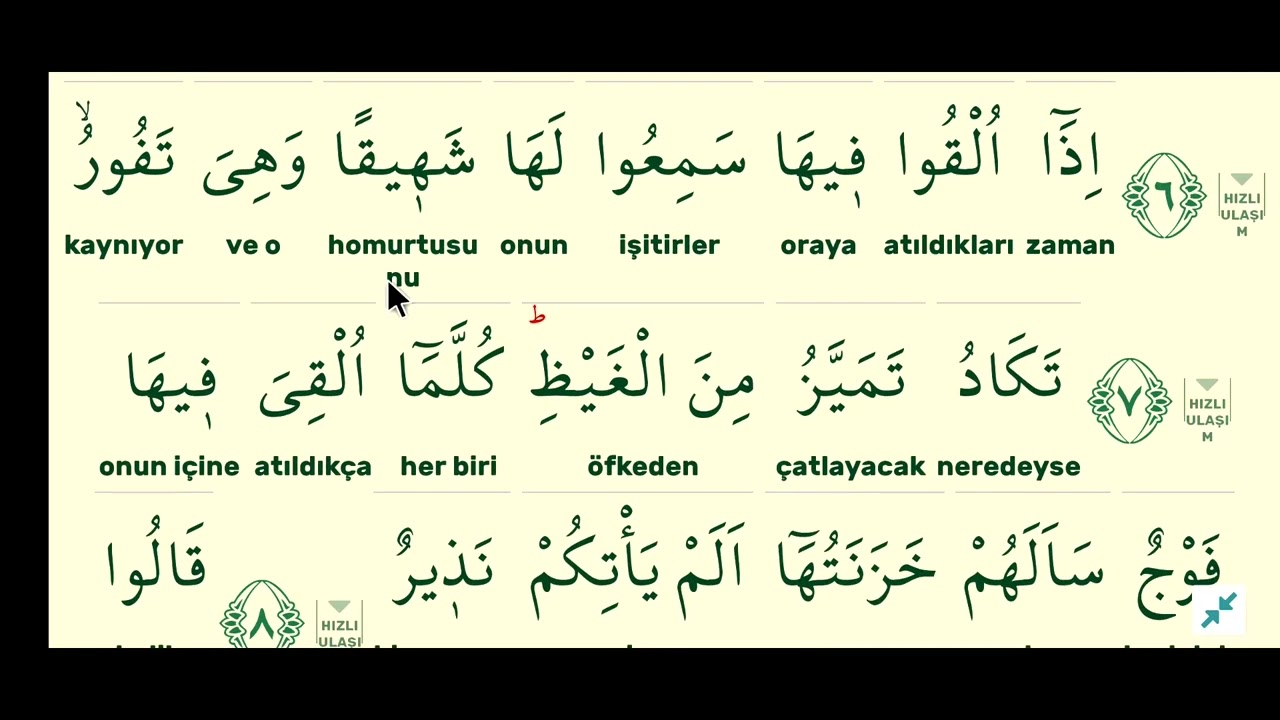 ٦ اِذَٓا اُلْقُوا ف۪يهَا سَمِعُوا لَهَا شَه۪يقًا وَهِىَ تَفُورُۙ
HIZLI ULAŞIM
zaman atıldıkları oraya işitirler onun homurtusunu ve o kaynıyor
٧ تَكَادُ تَمَيَّزُ مِنَ الْغَيْظِۜ كُلَّمَٓا اُلْقِىَ ف۪يهَا
HIZLI ULAŞIM
neredeyse çatlayacak öfkeden her biri atıldıkça onun içine
فَوْجٌ سَاَلَهُمْ خَزَنَتُهَٓا اَلَمْ يَأْتِكُمْ نَذ۪يرٌ ٨ قَالُوا
HIZLI ULAŞI